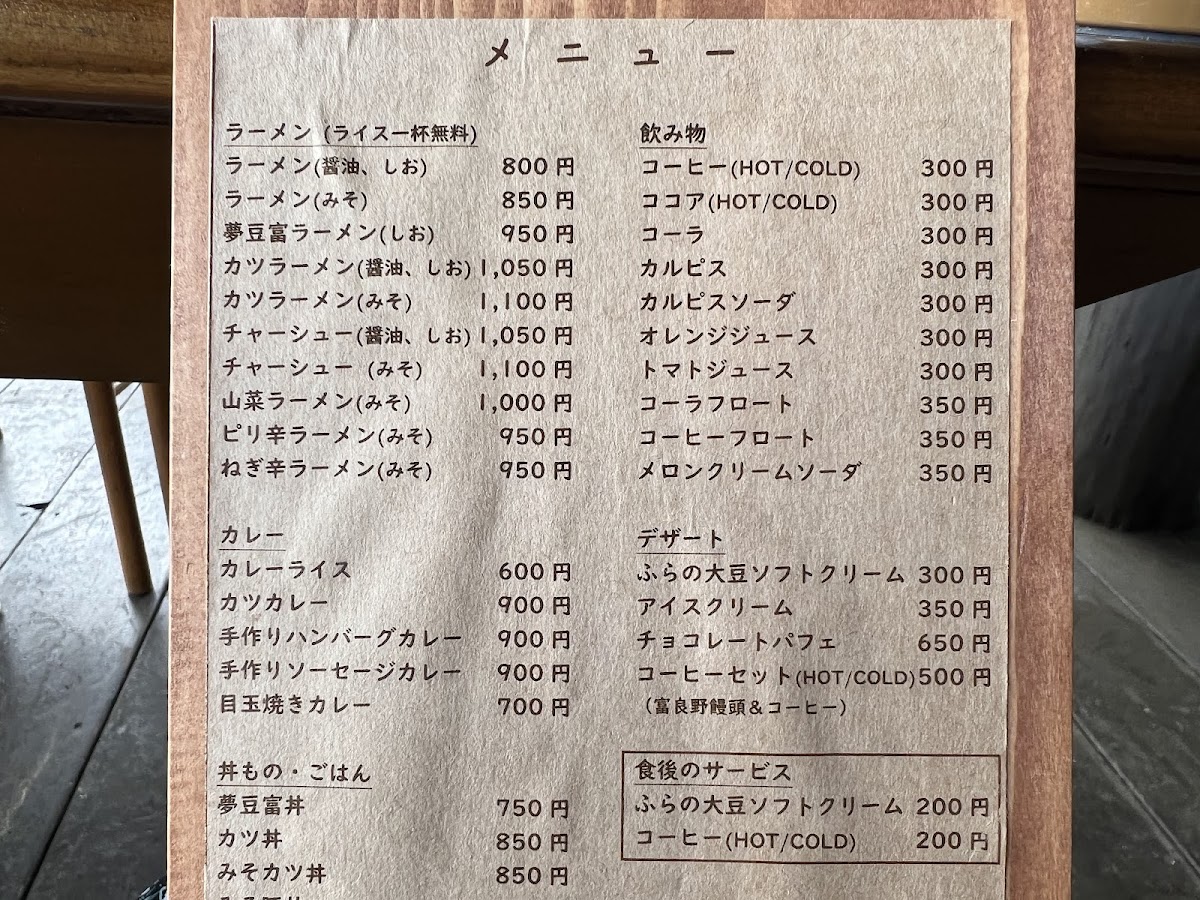 メニュー
ラーメン (ライス一杯無料)
ラーメン(醤油、しお) 800円
ラーメン(みそ) 850円
夢豆富ラーメン(しお) 950円
カツラーメン(醤油、しお) 1,050円
カツラーメン(みそ) 1,100円
チャーシュー(醤油、しお) 1,050円
チャーシュー (みそ) 1,100円
山菜ラーメン(みそ) 1,000円
ピリ辛ラーメン(みそ) 950円
ねぎ辛ラーメン(みそ) 950円
カレー
カレーライス 600円
カツカレー 900円
手作りハンバーグカレー 900円
手作りソーセージカレー 900円
目玉焼きカレー 700円
丼もの・ごはん
夢豆富丼 750円
カツ丼 850円
みそカツ丼 850円
飲み物
コーヒー(HOT/COLD) 300円
ココア(HOT/COLD) 300円
コーラ 300円
カルピス 300円
カルピスソーダ 300円
オレンジジュース 300円
トマトジュース 300円
コーラフロート 350円
コーヒーフロート 350円
メロンクリームソーダ 350円
デザート
ふらの大豆ソフトクリーム 300円
アイスクリーム 350円
チョコレートパフェ 650円
コーヒーセット(HOT/COLD) 500円
（富良野饅頭＆コーヒー）
食後のサービス
ふらの大豆ソフトクリーム 200円
コーヒー(HOT/COLD) 200円